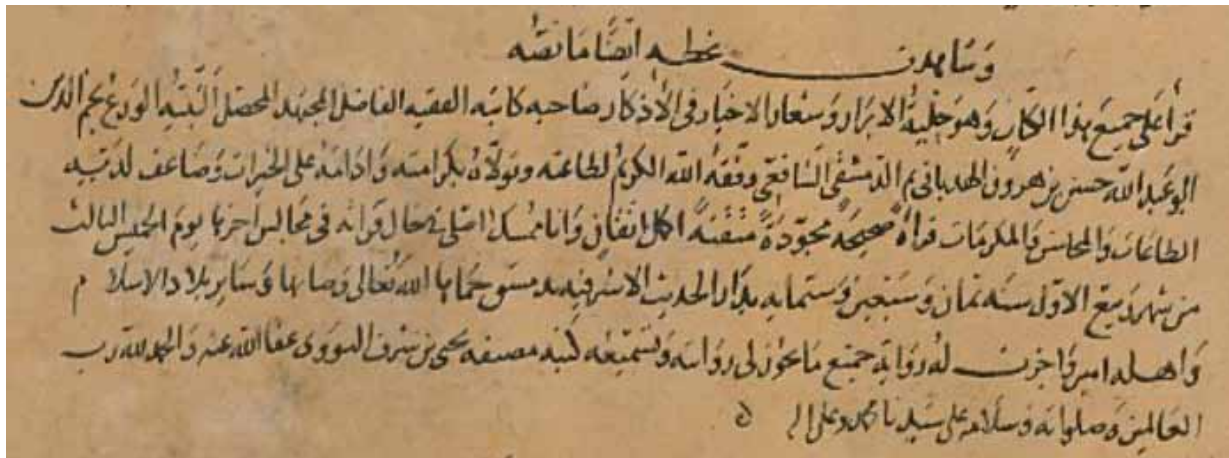 وشاهدت بخطه ايضا ما نصه
قرأ على جميع هذا الكتاب وهو حلية الابرار وشعار الاخيار فى الاذكار صاحبه كاتبه الفقيه الفاضل المجتهد المحصل النبيه الورع نجم الدين
ابو عبد الله حسن بن هرون الهدبانى ثم الدمشقى الشافعى وفقه الله الكريم لطاعته وتولاه بكرامته وادامه على الخيرات وضاعف لديه
الطاعات والمحاسن والمكرمات قراة صحيحة مجودة متقنة اكمل اتقان وانا ممسك اصلى فى حال قراته فى مجالس اخرها يوم الخميس الثالث
من شهر ربيع الاول سنه ثمان وسبعين وستمايه بدار الحديث الاشرفيه بدمشق حماها الله تعالى وصانها وساير بلاد الاسلام
واهله امين واجزت له رواية جميع ما تجوز لى روايته وتسميعه كتبه مصنفه يحيى بن شرف النووى عفا الله عنه والحمد لله رب
العالمين وصلواته وسلامه على سيدنا محمد وعلى اله